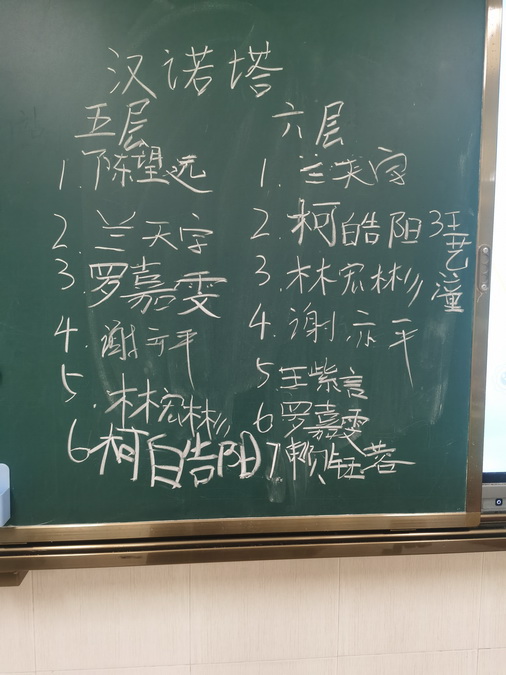 汉诺塔
五层
1.陈望远
2.兰天宇
3.罗嘉雯
4.谢亦平
5.林宏彬
6柯皓阳
六层
1.兰天宇
2.柯皓阳
3王艺潼
3.林宏彬
4.谢亦平
5王紫言
6罗嘉雯
7赖钰蓉